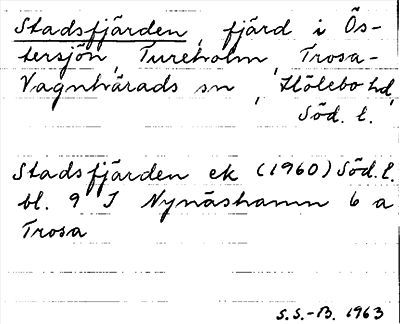 Stadsfjärden, fjärd i Ös-
tersjön, Tureholm, Trosa-
Vagnhärads sn, Hölebo hd,
Söd. l.
Stadsfjärden ek (1960) Söd. l.
bl. 9 I Nynäshamn 6 a
Trosa
S.S.-B. 1963